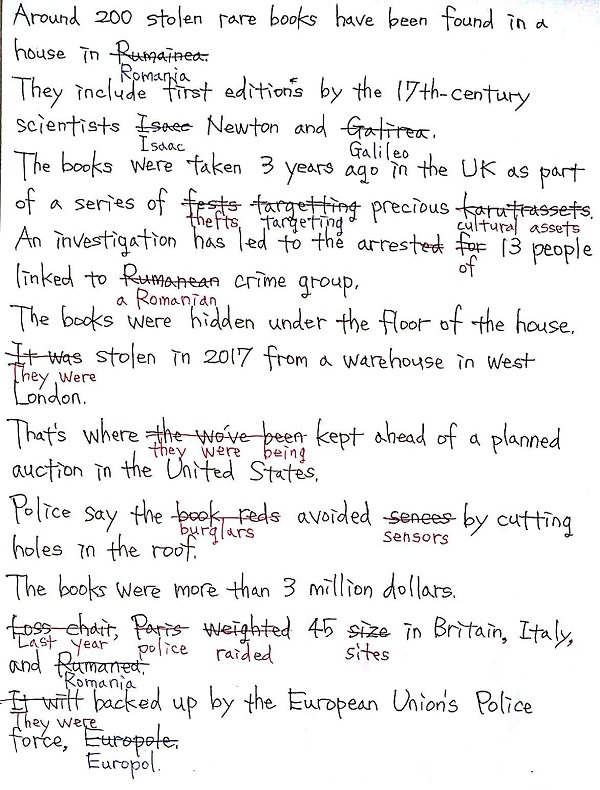 Around 200 stolen rare books have been found in a
house in Rumainea.
Romania
They include first editions by the 17th-century
scientists Isacc Newton and Galirea.
Isaac Galileo
The books were taken 3 years ago in the UK as part
of a series of fests targetting precious karutrassets.
thefts targeting cultural assets
An investigation has led to the arrested for 13 people
of
linked to Rumanean crime group.
a Romanian
The books were hidden under the floor of the house.
It was stolen in 2017 from a warehouse in West
They were
London.
That's where the wo've been kept ahead of a planned
they were being
auction in the United States.
Police say the book reds avoided sences by cutting
burglars sensors
holes in the roof.
The books were more than 3 million dollars.
Loss chair, Paris weighted 45 size in Britain, Italy,
Last year police raided sites
and Rumaned.
Romania
It will backed up by the European Union's Police
They were
force, Europole.
Europol.